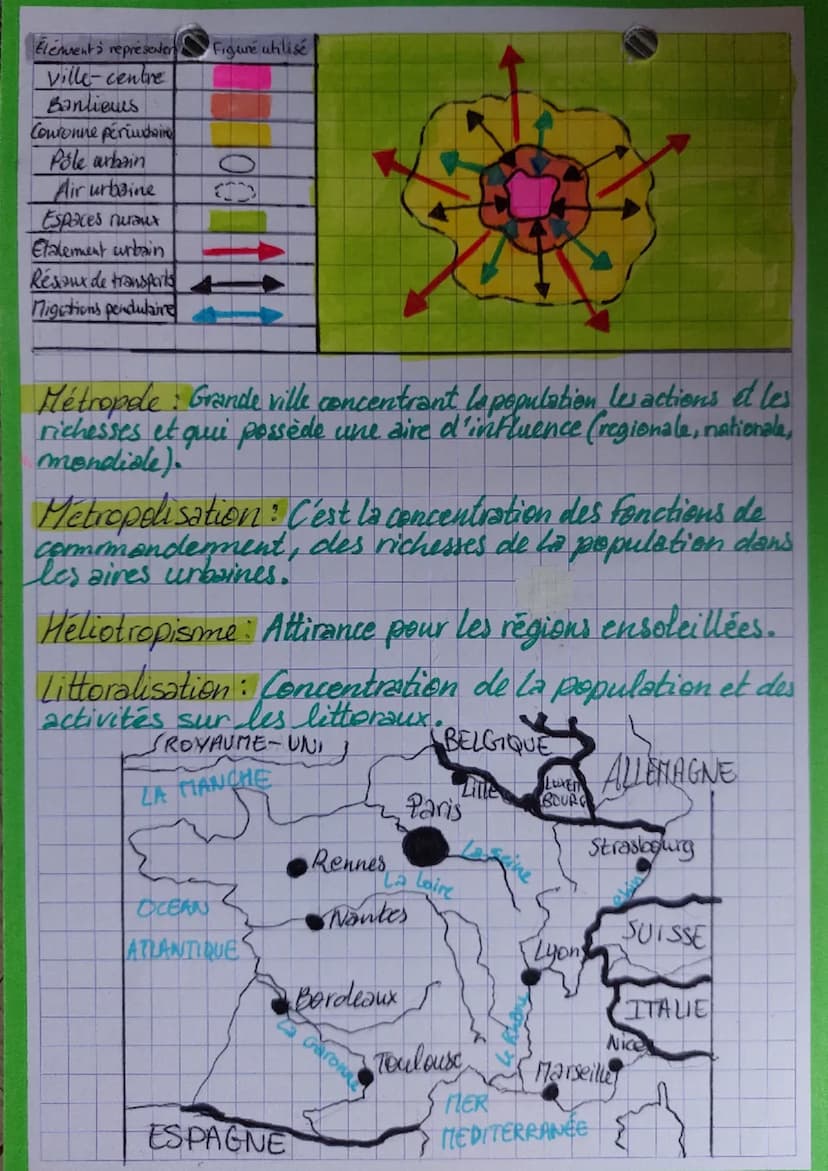 Élément à représenter Figuré utilisé
Ville-centre
Banlieues
Couronne périurbaine
Pôle urbain
Air urbaine
Espaces ruraux
Etalement urbain
Résaux de transports
Migations pendulaire
Métropole : Grande ville concentrant la population les actions et les
richesses et qui possède une aire d'influence (regionale, nationale,
mondiale).
Métropolisation : C'est la concentration des fonctions de
commmandemment, des richesses de la population dans
les aires urbaines.
Héliotropisme : Attirance pour les régions ensoleillées.
Littoralisation : Concentration de la population et des
activités sur les littoraux.
ROYAUME-UNI
BELGIQUE
ALLEMAGNE
LA MANCHE
Lille
LUXEM
BOURG
Paris
Strasbourg
Rennes
La Seine
La Loire
Rhin
OCEAN
ATLANTIQUE
Nantes
SUISSE
Lyon
Bordeaux
ITALIE
La Garonne
Le Rhône
Nice
Toulouse
Marseille
MER
MEDITERRANÉE
ESPAGNE